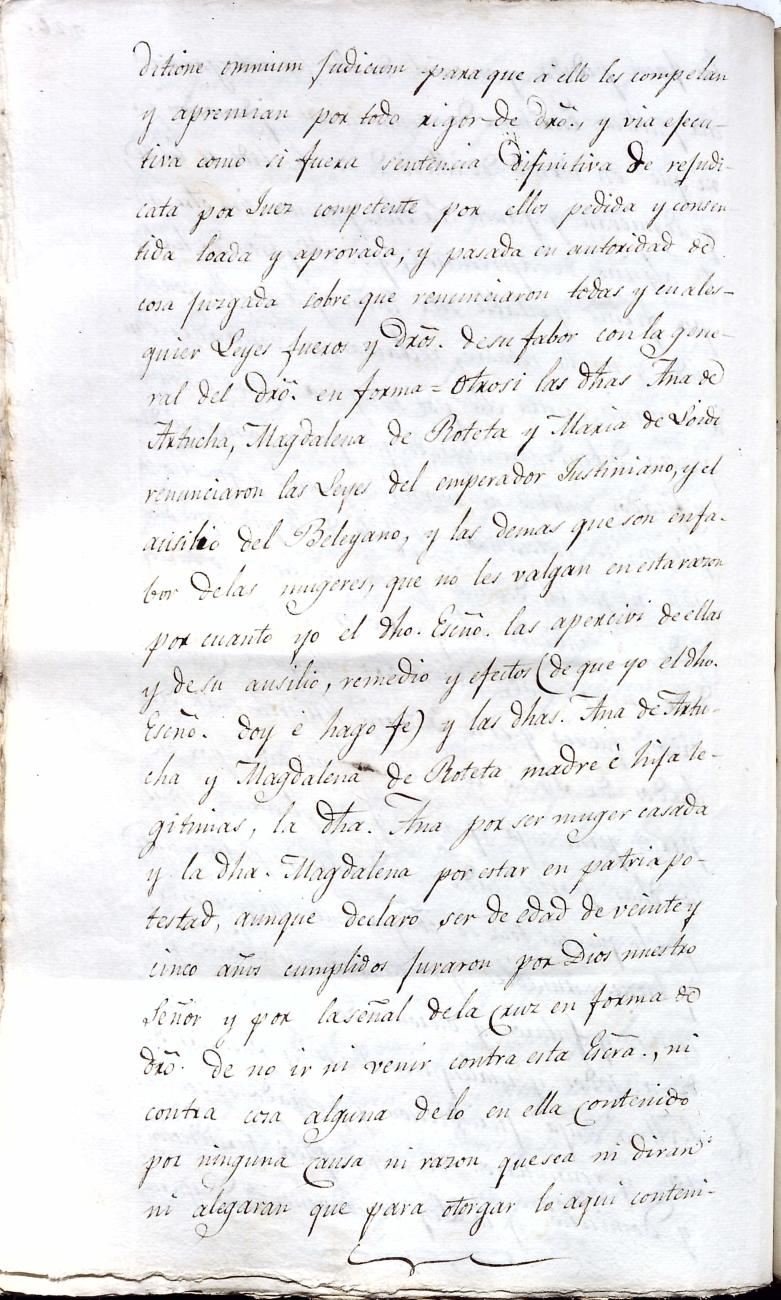 ditione omnium Judicum para que á ello les compelan
y apremian por todo rigor de Drõ., y via ejecu-
tiva como si fuera sentencia difinitiva de rejudi-
cata por Juez competente por ellos pedida y consen
tida loada y aprovada, y pasada en autoridad de
cosa juzgada sobre que renunciaron todas y cuales-
quier Leyes fueros y Drõs. de su fabor con la gene-
ral del Drõ. en forma = Otrosi las dhas Ana de
Artucha, Magdalena de Roteta y Maria de Loidi
renunciaron las Leyes del emperador Justiniano, y el
ausilio del Beleyano, y las demas que son en fa-
bor de las mugeres, que no les valgan en esta razon
por cuanto yo el dho. Esćno. las apercivi de ellas
y de su ausilio, remedio y efectos (de que yo el dho.
Esćno. doy é hago fe) y las dhas. Ana de Artu-
cha y Magdalena de Roteta madre é hija le-
gitimas, la dha. Ana por ser muger casada
y la dha. Magdalena por estar en patria po-
testad, aunque declaró ser de edad de veinte y
cinco años cumplidos juraron por Dios nuestro
Señor y por la señal de la Cruz en forma de
drõ. de no ir ni venir contra esta Escra., ni
contra cosa alguna de lo en ella contenido
por ninguna causa ni razon que sea ni diran
ni alegaran que para otorgar lo aqui conteni-